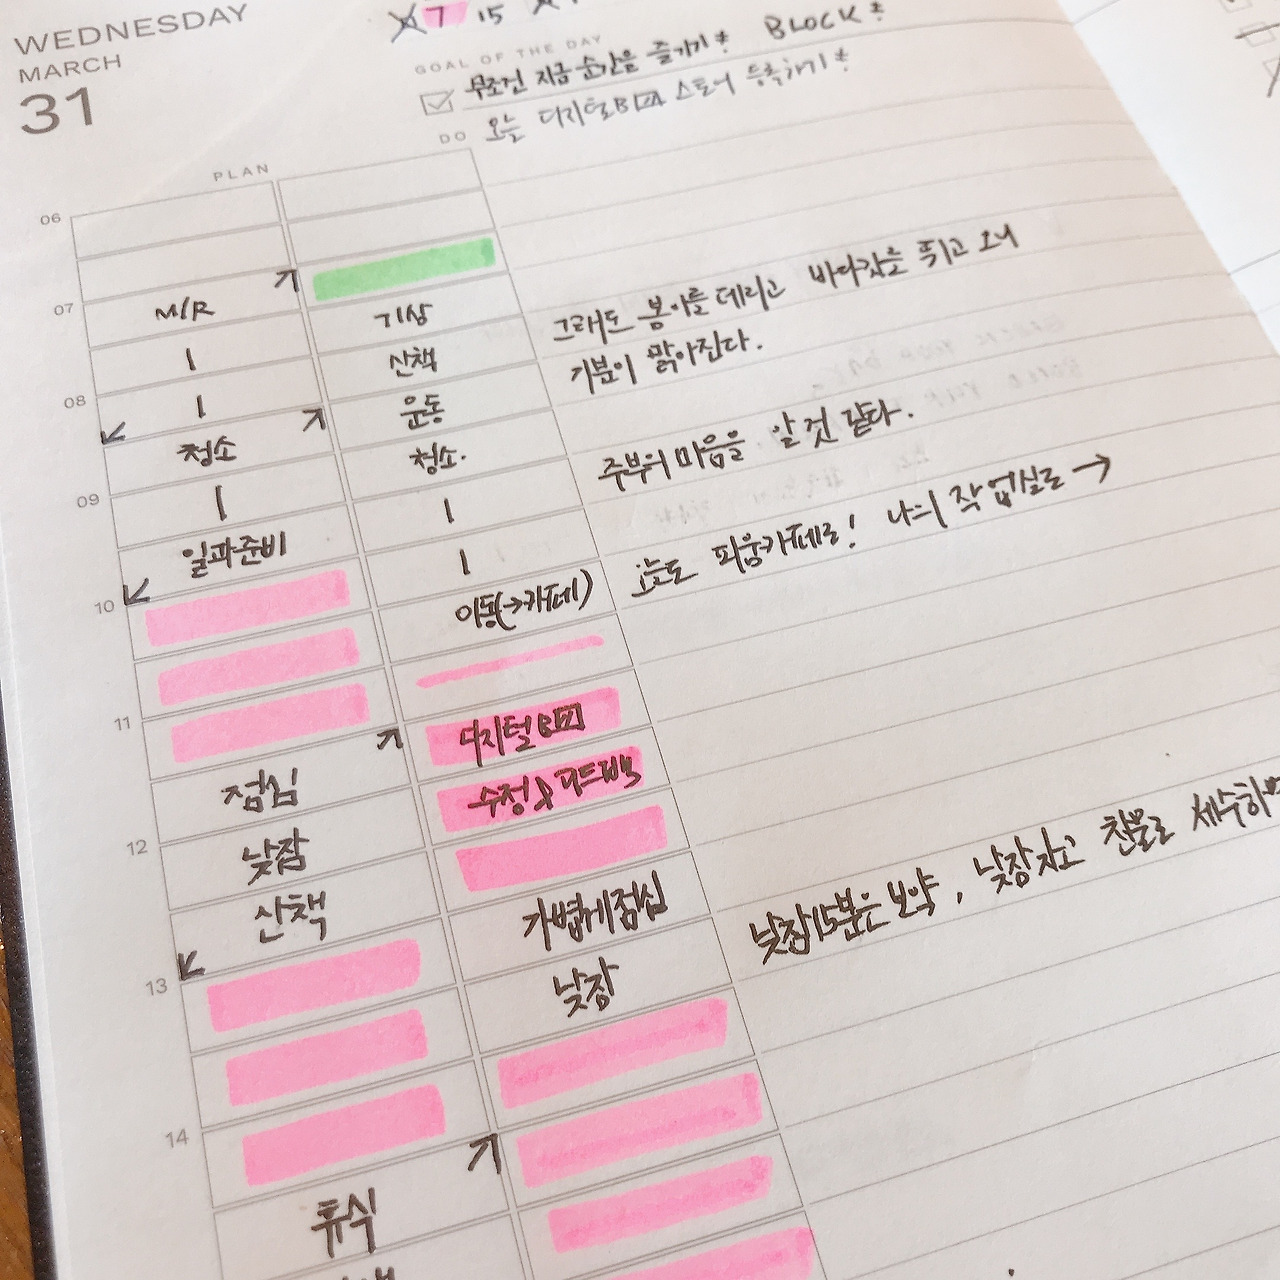 WEDNESDAY
MARCH
31
7 15
GOAL OF THE DAY
무조건 지금 순간을 즐기기! BLOCK!
오늘 디지털B 스토어 등록하기!
PLAN
DO
06
07
M/R
기상
그래도 봄이를 데리고 바다갓을 뛰고 오니
기분이 맑아진다.
산책
08
운동
청소
청소.
주부의 마음을 알 것 같다.
09
일과준비
이동(→카페)
오늘도 피움카페로! 나의 작업실로 →
10
11
디지털B
점심
수정& 피드백
12
낮잠
산책
가볍게점심
낮잠15분은 보약, 낮잠자고 찬물로 세수하면
13
낮잠
14
휴식